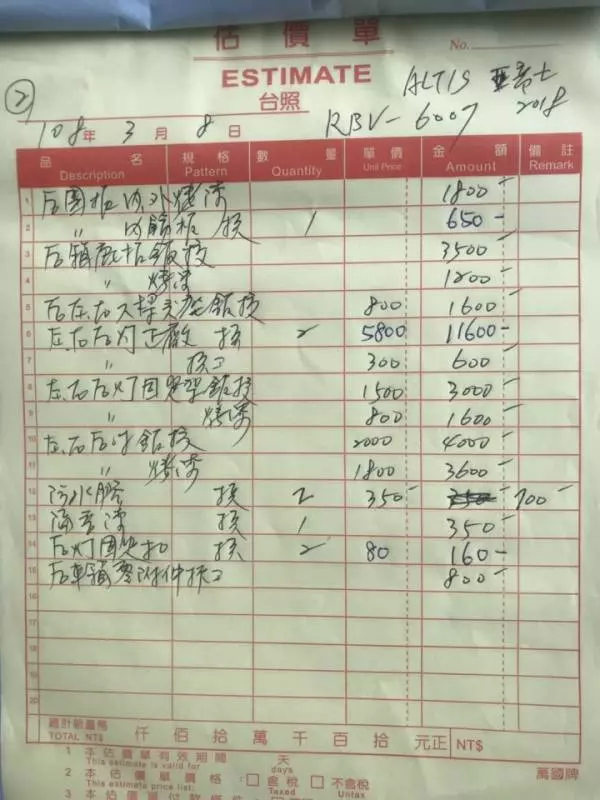 估價單
No.
ESTIMATE
台照
② ALTIS 2018
108年 3月 8日 RBV-6007
品名 規格 數量 單價 金額 備註
Description Pattern Quantity Unit Price Amount Remark
1 后圍板內.外烤漆 1800-
2 〃 內飾板 換 1 650-
3 后箱底板鈑換 3500-
4 〃 烤漆 1200-
5 后左.右大樑 鈑換 800 1600-
6 左.右后灯正廠 換 2 5800 11600-
7 〃 換工 300 600-
8 左.右后灯固定架鈑換 1500 3000-
9 〃 烤漆 800 1600-
10 左.右后 鈑換 2000 4000-
11 〃 烤漆 1800 3600-
12 防水膠 換 2 350- 700-
13 隔音漆 換 1 350-
14 后灯固定扣 換 2 80 160-
15 后車箱零附件拆工 800-
16
17
18
19
20
總計新臺幣 仟佰拾萬仟百拾元正 NT$
TOTAL NT$
1 本估價單有效期間 天
This estimate is valid for days
萬國牌
2 本估價單價格:□含稅 □不含稅
This estimate price list: Taxed Untax
3 本估價單付款條件: